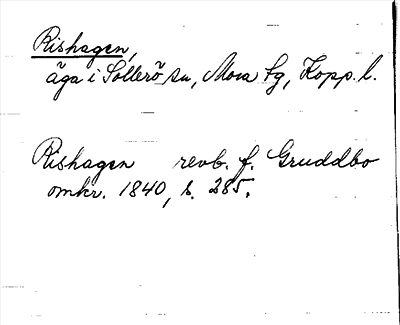 Rishagen,
äga i Sollerö sn, Mora tg, Kopp. l.
Rishagen revb. f. Gruddbo
omkr. 1840, s. 285.